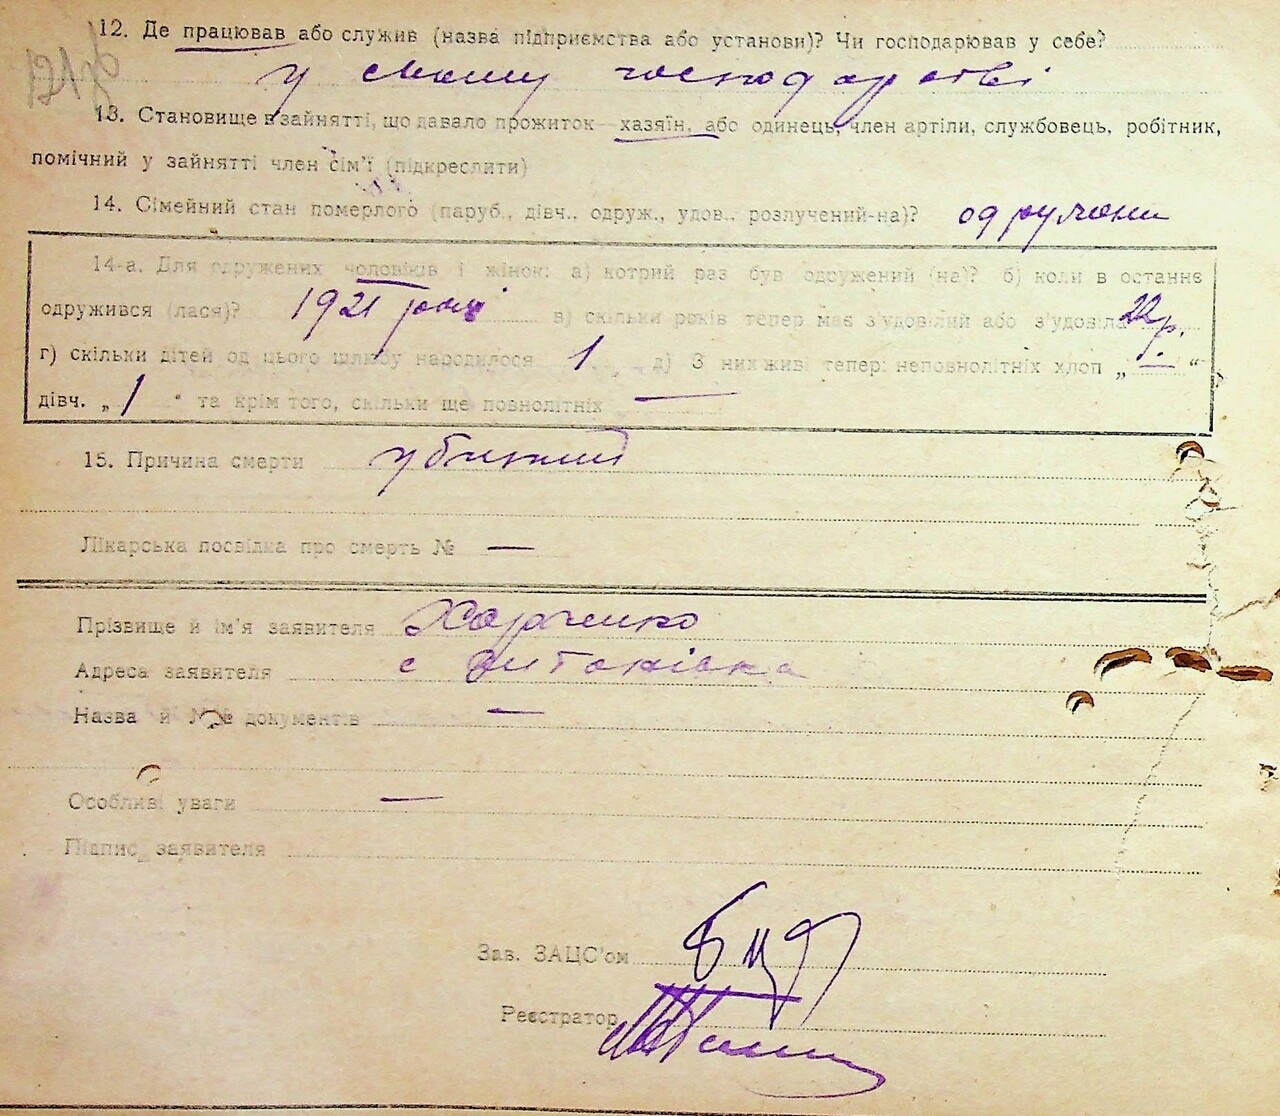 12. Де працював або служив (назва підприємства або установи)? Чи господарював у себе?
у своему господарстві
13. Становище в зайнятті, що давало прожиток — хазяїн, або одинець, член артіли, службовець, робітник,
помічний у зайнятті член сім'ї (підкреслити)
14. Сімейний стан померлого (паруб., дівч., одруж., удов., розлучений-на)? одружени
14-а. Для одружених чоловіків і жінок: а) котрий раз був одружений (на)? б) коли в останнє
одружився (лася)? 1921 році в) скільки років тепер має з'удовілий або з'удовіла 22 р.
г) скільки дітей од цього шлюбу народилося 1 д) З них живі тепер: неповнолітніх хлоп „ — “
дівч. „ 1 “ та крім того, скільки ще повнолітніх —
15. Причина смерти убитий
Лікарська посвідка про смерть № —
Прізвище й ім'я заявителя Харченко
Адреса заявителя с
Назва й №№ документів —
Особливі уваги —
Підпис заявителя
Зав. ЗАЦС'ом
Реєстратор